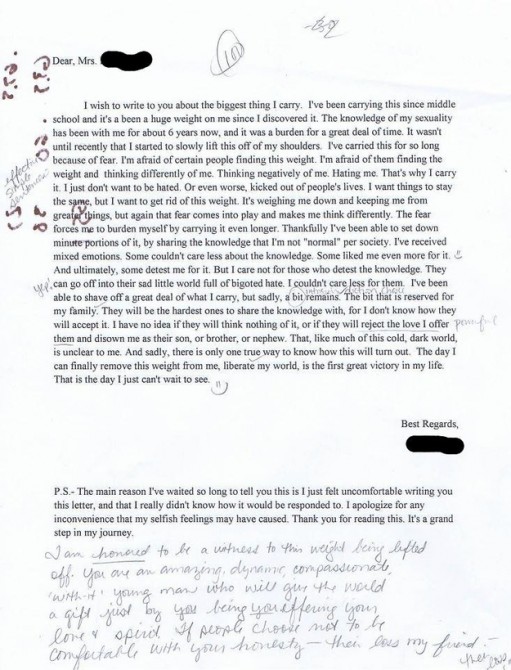 100
Dear, Mrs.
I wish to write to you about the biggest thing I carry. I've been carrying this since middle
school and it's a been a huge weight on me since I discovered it. The knowledge of my sexuality
has been with me for about 6 years now, and it was a burden for a great deal of time. It wasn't
until recently that I started to slowly lift this off of my shoulders. I've carried this for so long
because of fear. I'm afraid of certain people finding this weight. I'm afraid of them finding the
weight and thinking differently of me. Thinking negatively of me. Hating me. That's why I carry
it. I just don't want to be hated. Or even worse, kicked out of people's lives. I want things to stay
the same, but I want to get rid of this weight. It's weighing me down and keeping me from
greater things, but again that fear comes into play and makes me think differently. The fear
forces me to burden myself by carrying it even longer. Thankfully I've been able to set down
minute portions of it, by sharing the knowledge that I'm not "normal" per society. I've received
mixed emotions. Some couldn't care less about the knowledge. Some liked me even more for it.
And ultimately, some detest me for it. But I care not for those who detest the knowledge. They
yep! can go off into their sad little world full of bigoted hate. I couldn't care less for them. I've been
able to shave off a great deal of what I carry, but sadly, a bit remains. The bit that is reserved for
my family. They will be the hardest ones to share the knowledge with, for I don't know how they
will accept it. I have no idea if they will think nothing of it, or if they will reject the love I offer powerful
them and disown me as their son, or brother, or nephew. That, like much of this cold, dark world,
is unclear to me. And sadly, there is only one true way to know how this will turn out. The day I
can finally remove this weight from me, liberate my world, is the first great victory in my life.
That is the day I just can't wait to see.
Best Regards,
P.S.- The main reason I've waited so long to tell you this is I just felt uncomfortable writing you
this letter, and that I really didn't know how it would be responded to. I apologize for any
inconvenience that my selfish feelings may have caused. Thank you for reading this. It's a grand
step in my journey.
I am honored to be a witness to this weight being lifted
off. You are an amazing, dynamic, compassionate,
"with-it" young man who will give the world
a gift just by you being you offering your
love & spirit. If people choose not to be
comfortable with your honesty – their loss my friend –
their loss.